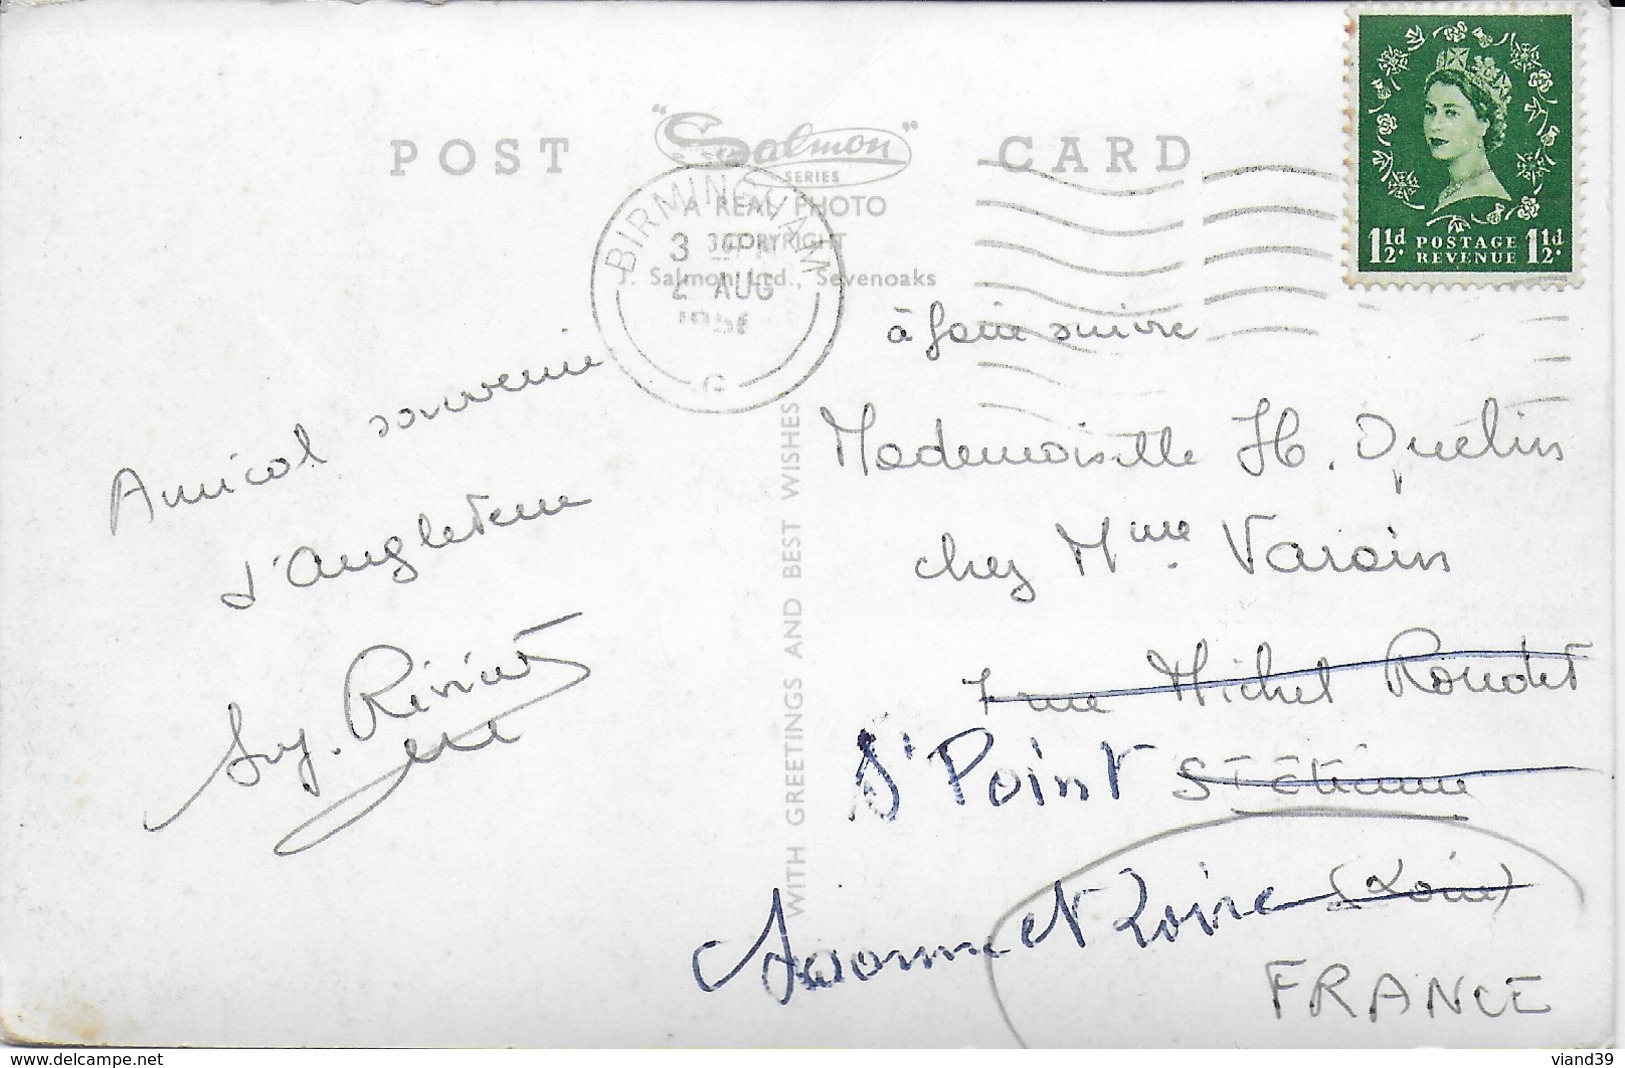 POST "Salmon" CARD
SERIES
A REAL PHOTO
COPYRIGHT
J. Salmon Ltd., Sevenoaks
BIRMINGHAM
3
2 AUG
G
1½d. POSTAGE REVENUE 1½d.
WITH GREETINGS AND BEST WISHES
Amical souvenir
d'Angleterre
à faire suivre
Mademoiselle H. Quelin
chez Mme. Varoin
7 rue Michel Rondet
St Point St Etienne
Saonne et Loire (Loire)
FRANCE
www.delcampe.net
viand39